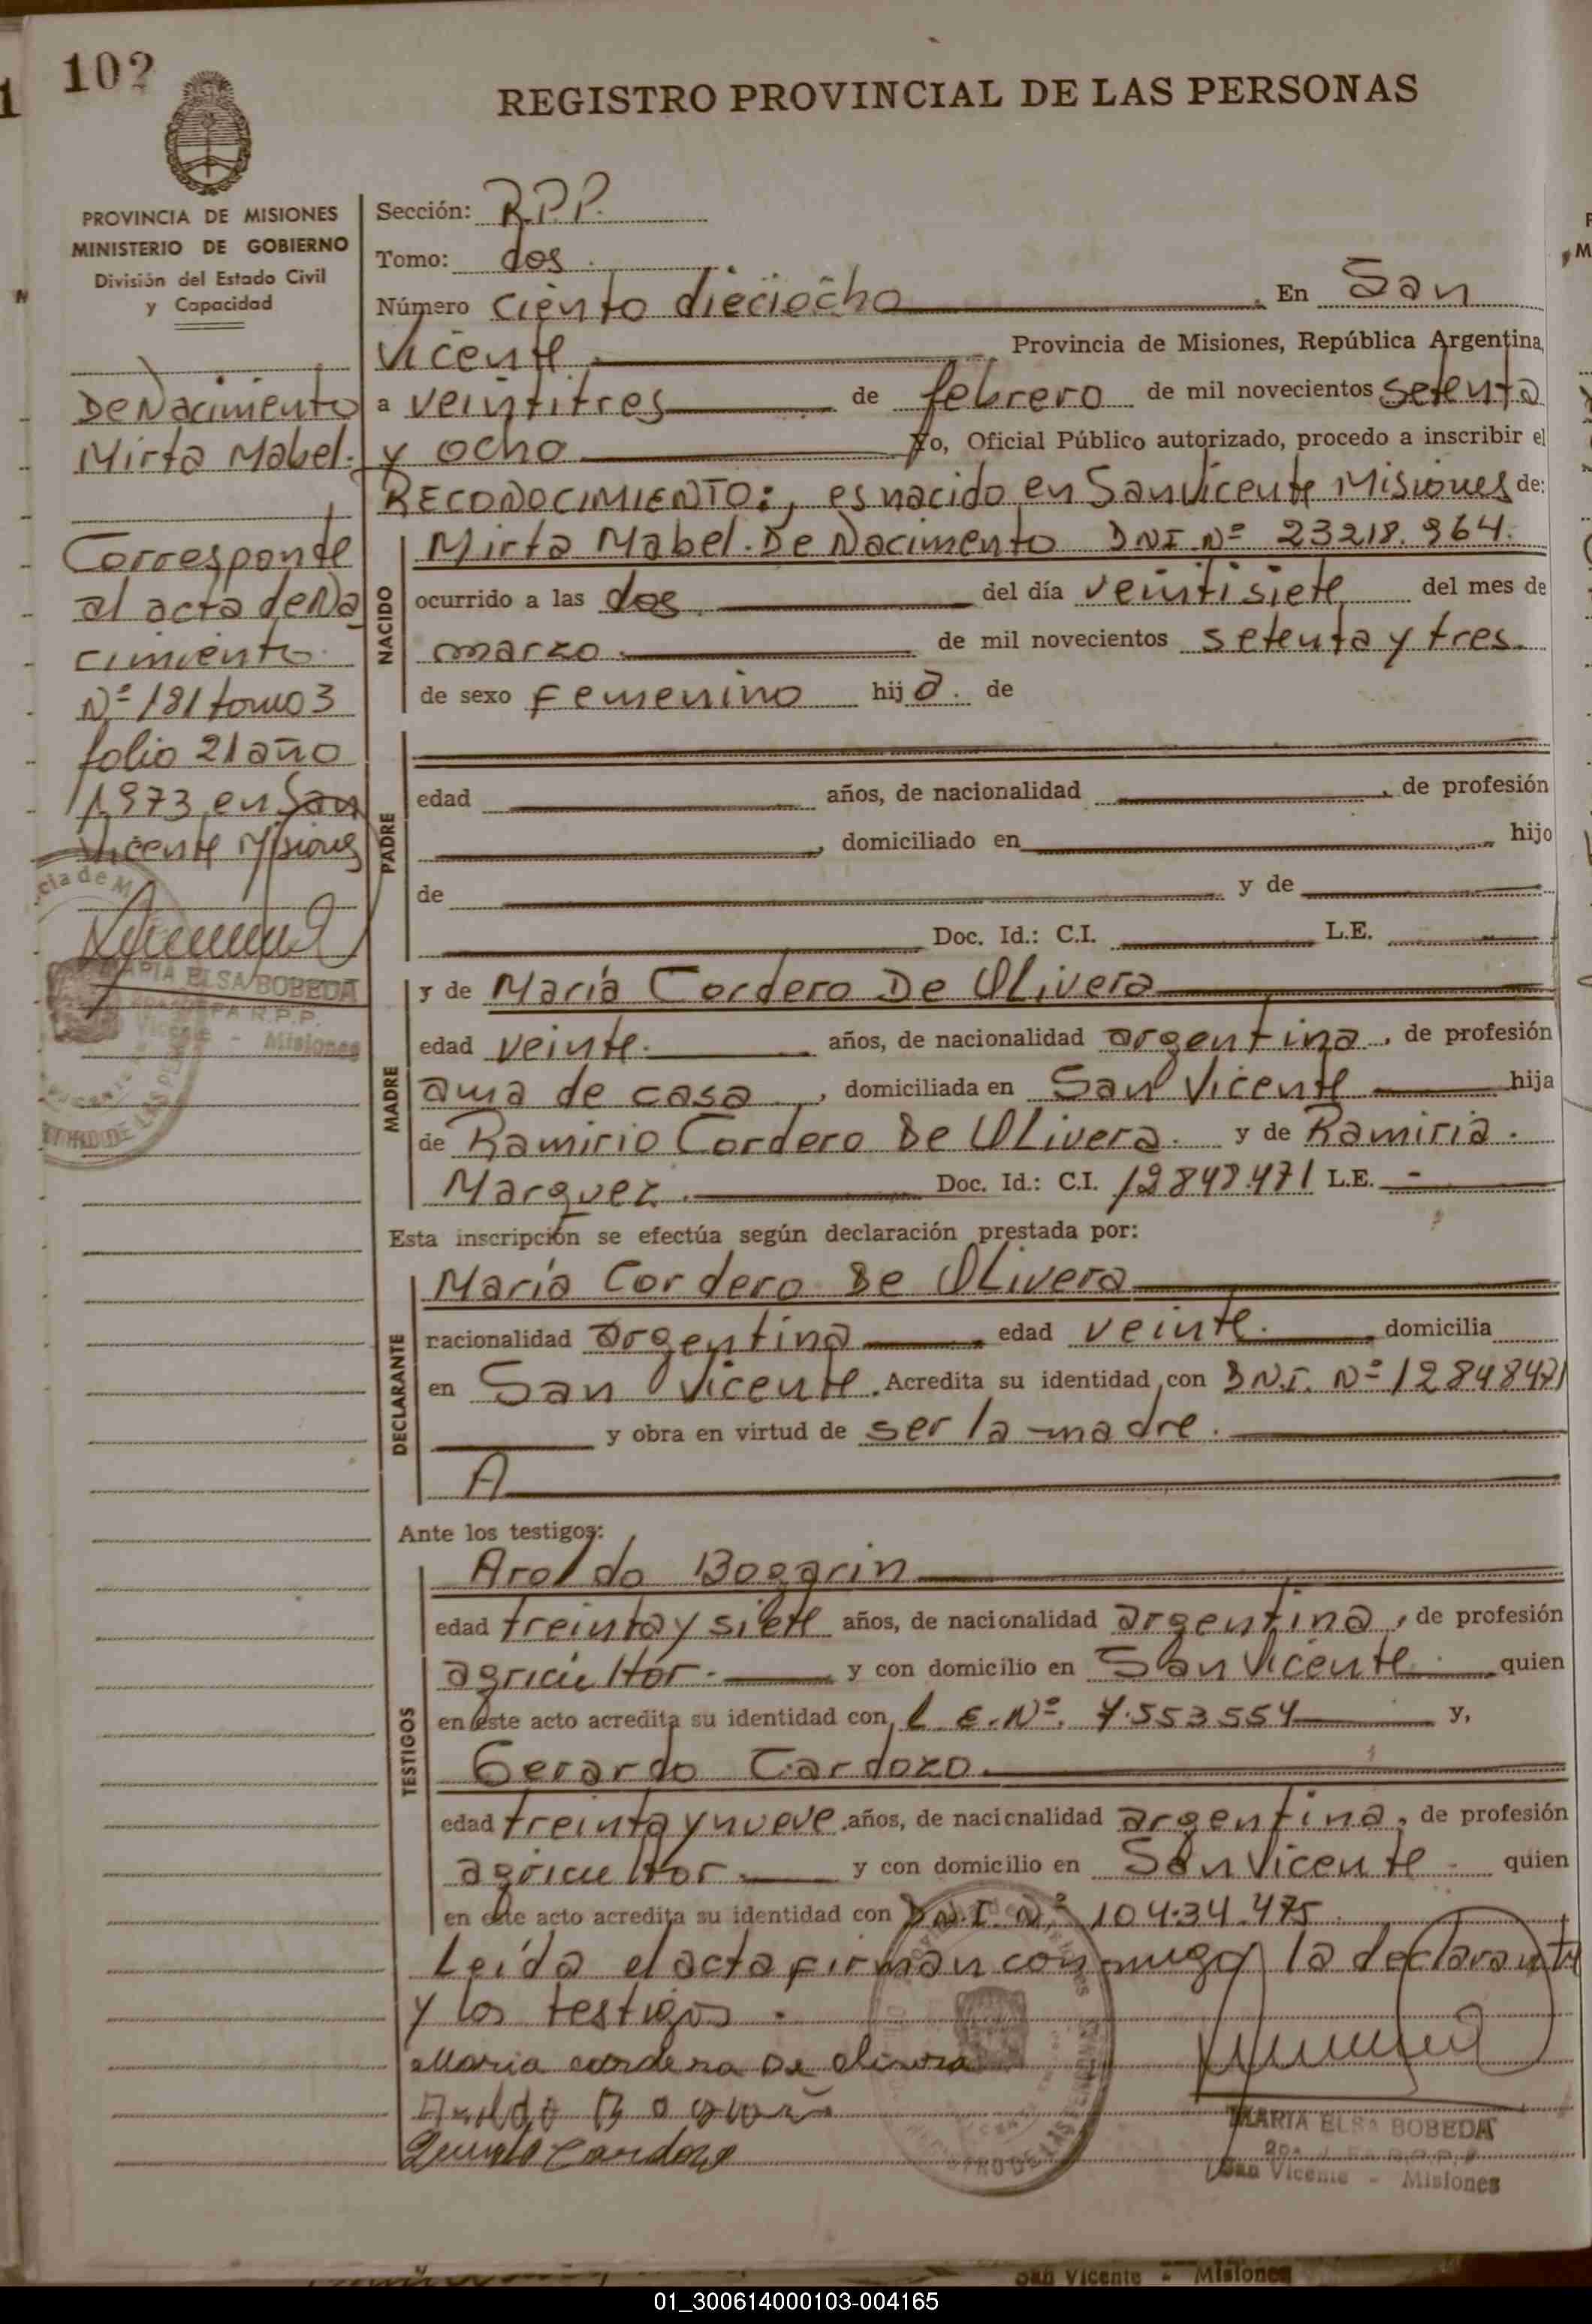 102
REGISTRO PROVINCIAL DE LAS PERSONAS
PROVINCIA DE MISIONES
MINISTERIO DE GOBIERNO
División del Estado Civil
y Capacidad
De Nacimiento
Mirta Mabel.
Corresponde
al acta de Na
cimiento
Nº 181 tomo 3
folio 21 año
1973 en San
Vicente Misiones
MARIA ELSA BOBEDA
R.P.P.
Vicente - Misiones
Sección: R.P.P.
Tomo: dos.
Número ciento dieciocho En San
Vicente. Provincia de Misiones, República Argentina,
a veintitres de febrero de mil novecientos setenta
y ocho Yo, Oficial Público autorizado, procedo a inscribir el
RECONOCIMIENTO:, es nacido en San Vicente Misiones de:
NACIDO
Mirta Mabel. De Nacimento DNI Nº 23218.964.
ocurrido a las dos. del día veintisiete del mes de
marzo. de mil novecientos setenta y tres.
de sexo femenino hija. de
PADRE
edad años, de nacionalidad , de profesión
, domiciliado en hijo
de y de
Doc. Id.: C.I. L.E.
MADRE
y de María Cordero De Olivera
edad veinte. años, de nacionalidad argentina, de profesión
ama de casa, domiciliada en San Vicente hija
de Ramirio Cordero De Olivera. y de Ramiria.
Marquez. Doc. Id.: C.I. 12848471 L.E. -
Esta inscripción se efectúa según declaración prestada por:
DECLARANTE
María Cordero De Olivera
nacionalidad argentina, edad veinte. , domicilia
en San Vicente. Acredita su identidad con D.N.I. Nº 12848471
y obra en virtud de ser la madre.
A
Ante los testigos:
TESTIGOS
Aroldo Bogarin
edad treinta y siete años, de nacionalidad argentina, de profesión
agricultor. y con domicilio en San Vicente. quien
en este acto acredita su identidad con L.E. Nº. 7.553554 y,
Gerardo Cardozo.
edad treinta y nueve. años, de nacionalidad argentina, de profesión
agricultor. y con domicilio en San Vicente. quien
en este acto acredita su identidad con D.N.I. Nº 10434.475.
Leída el acta firman conmigo la declarante
y los testigos.
Maria cordero De olivera
Cardozo
MARIA ELSA BOBEDA
San Vicente - Misiones
San Vicente - Misiones
01_300614000103-004165